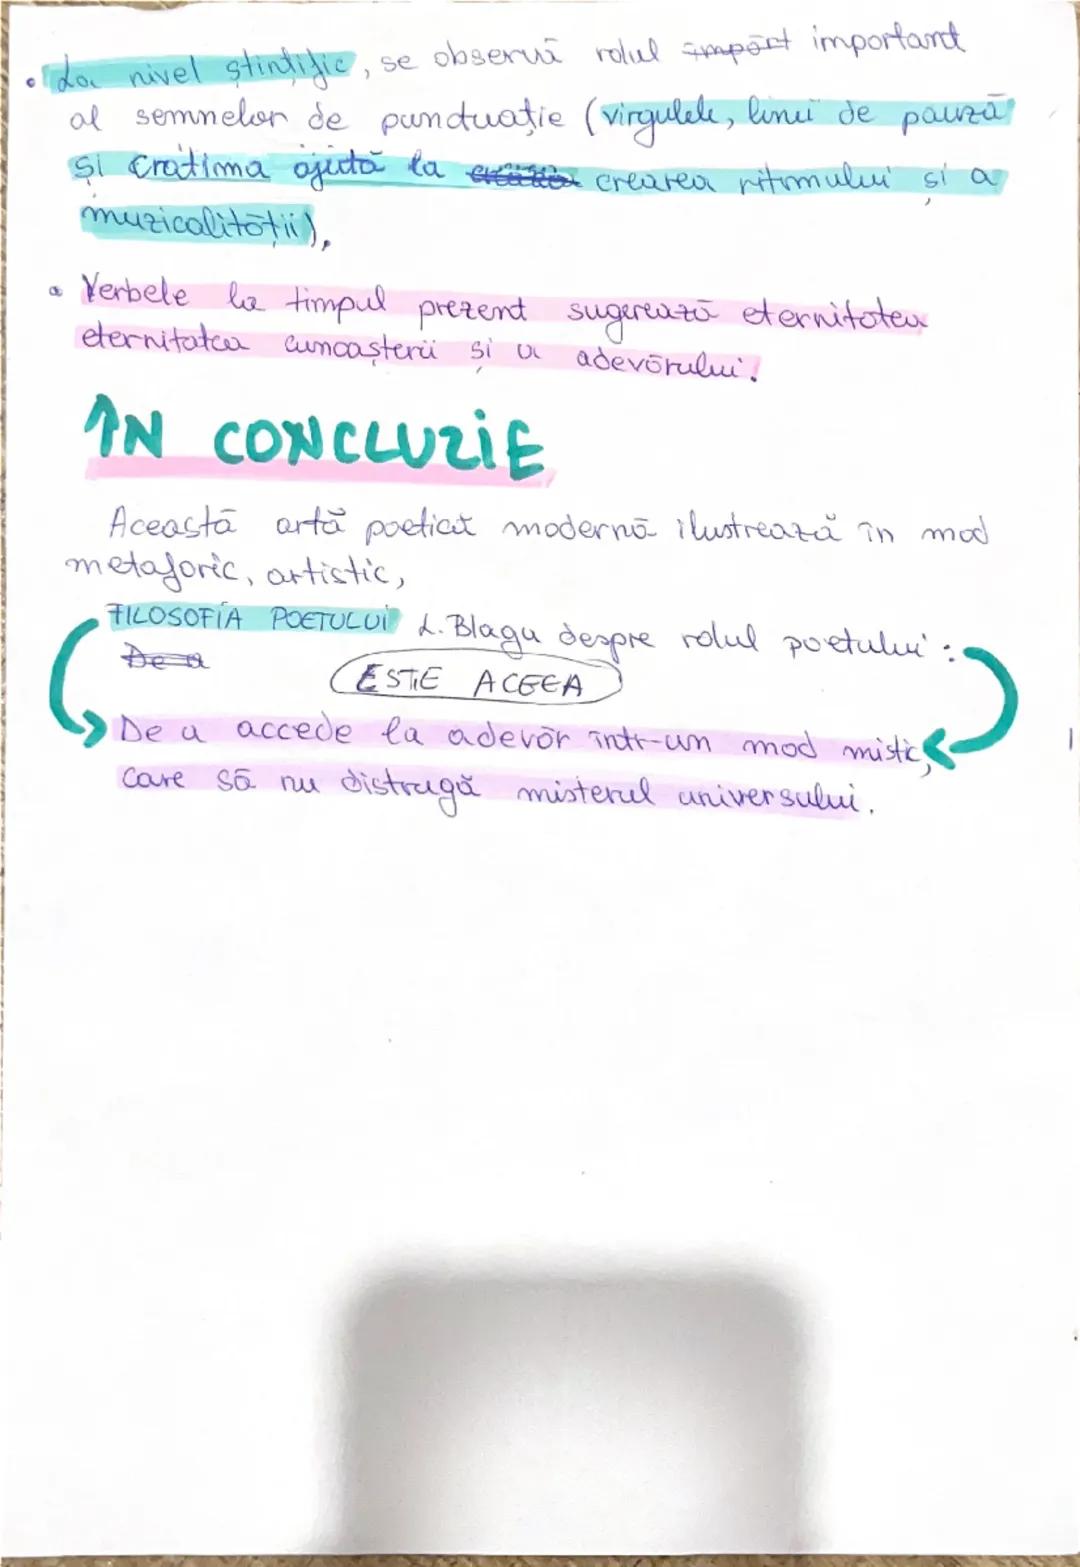 • La nivel științific, se observă rolul import important
al semnelor de punctuație (virgulele, linii de pauză
și cratima ajută la crearea ritmului și a
muzicalității).
• Verbele la timpul prezent sugerează eternitatea
eternitatea cunoașterii și a adevărului.
ÎN CONCLUZIE
Această artă poetică modernă ilustrează în mod
metaforic, artistic,
FILOSOFIA POETULUI L. Blaga despre rolul poetului:
De a
ESTE ACEEA
De a accede la adevăr într-un mod mistic,
care să nu distrugă misterul universului.